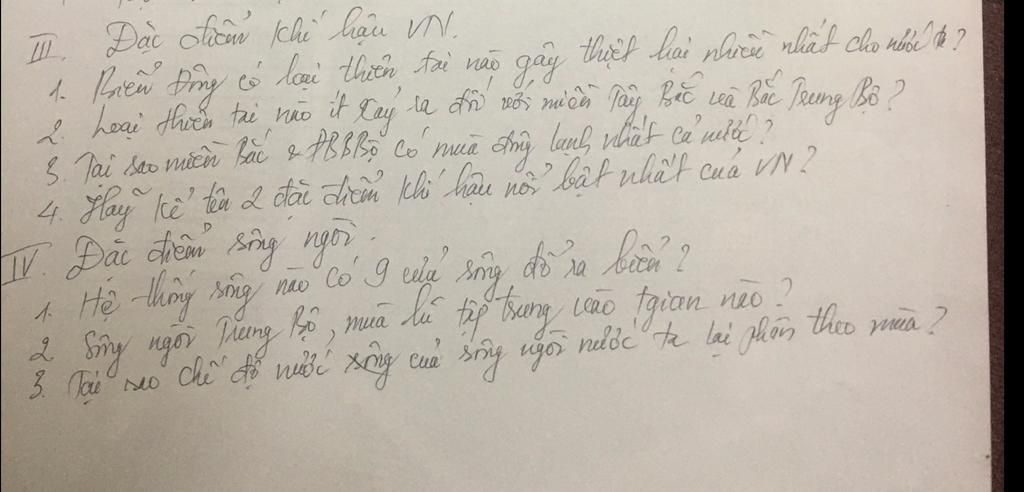 III. Đặc điểm khí hậu VN.
1. Biển Đông có loại thiên tai nào gây thiệt hại nhiều nhất cho nước ta?
2. Loại thiên tai nào ít xảy ra đối với miền Tây Bắc và Bắc Trung Bộ?
3. Tại sao miền Bắc & ĐBBBộ có mùa đông lạnh nhất cả nước?
4. Hãy kể tên 2 đặc điểm khí hậu nổi bật nhất của VN?
IV. Đặc điểm sông ngòi.
1. Hệ thống sông nào có 9 cửa sông đổ ra biển?
2 Sông ngòi Trung Bộ, mùa lũ tập trung vào tgian nào?
3. Tại sao chế độ nước sông của sông ngòi nước ta lại phân theo mùa?